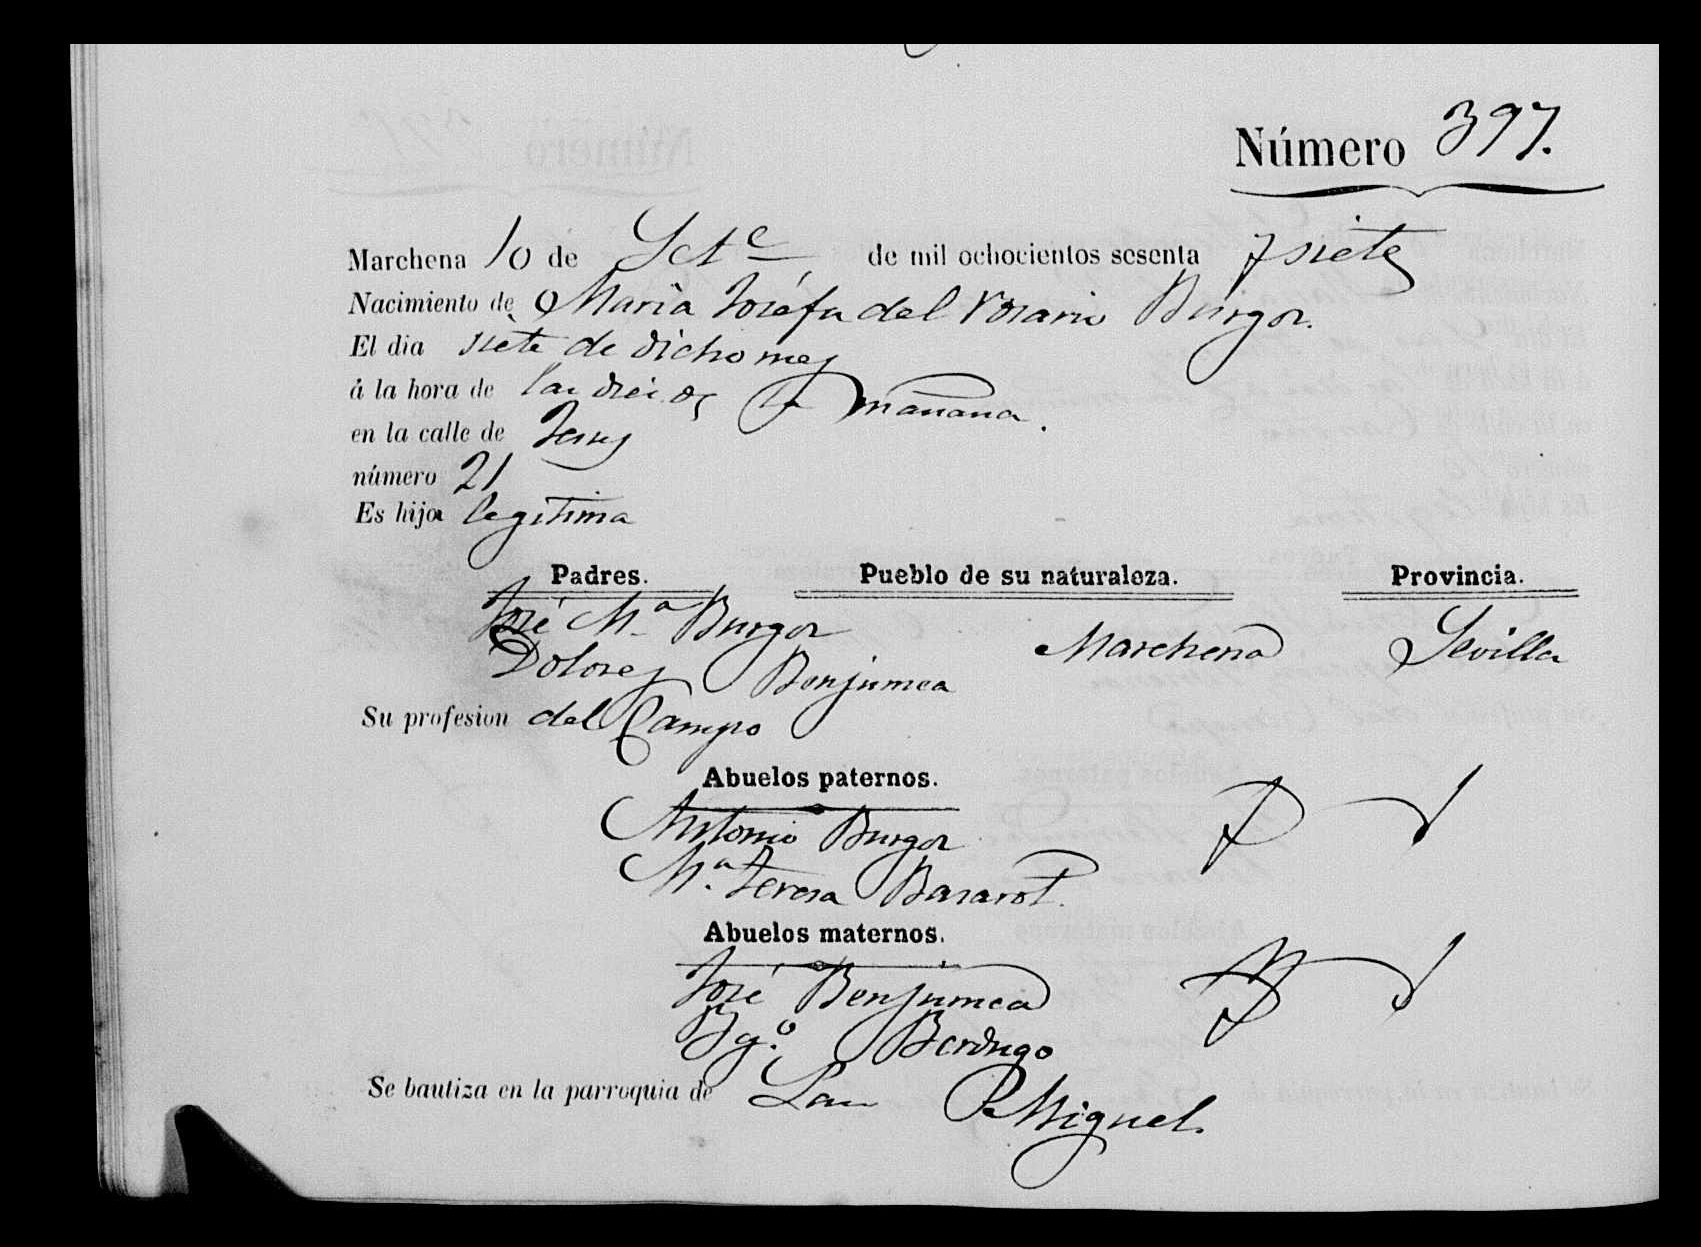 Número 397.
Marchena 10 de Set.e de mil ochocientos sesenta y siete
Nacimiento de Maria Joséfa del Rosario Burgos.
El dia siete de dicho mes
á la hora de las diez de la mañana.
en la calle de Jesus
número 21
Es hija legitima
Padres. Pueblo de su naturaleza. Provincia.
José M.a Burgos Marchena Sevilla
Dolores Benjumea
Su profesion del Campo
Abuelos paternos.
Antonio Burgos
M.a Teresa
Abuelos maternos.
José Benjumea
Berdugo
Se bautiza en la parroquia de San Miguel.